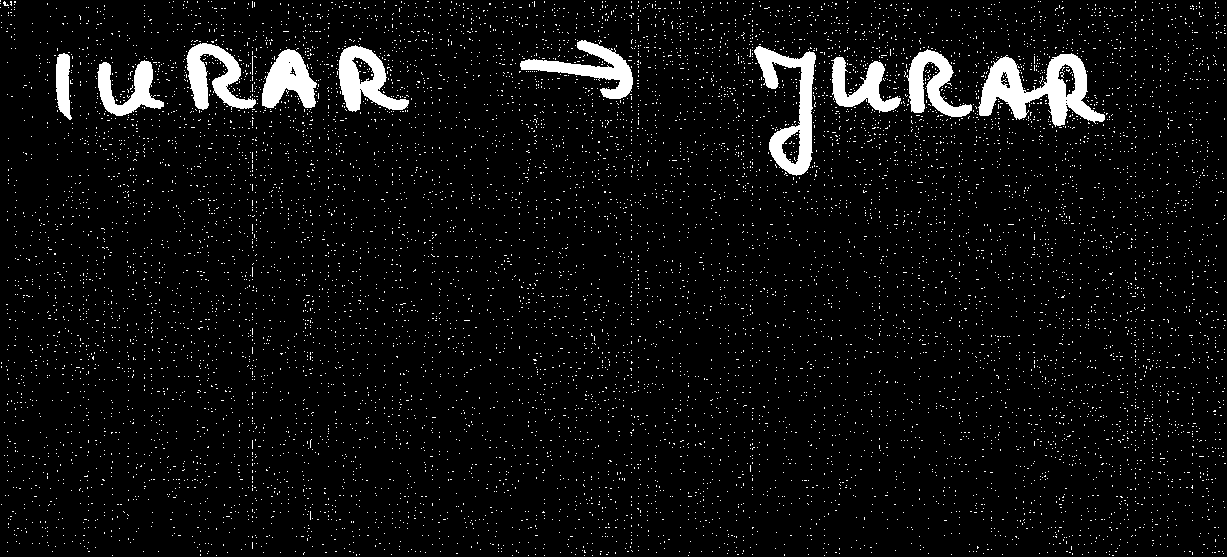 IURAR → JURAR